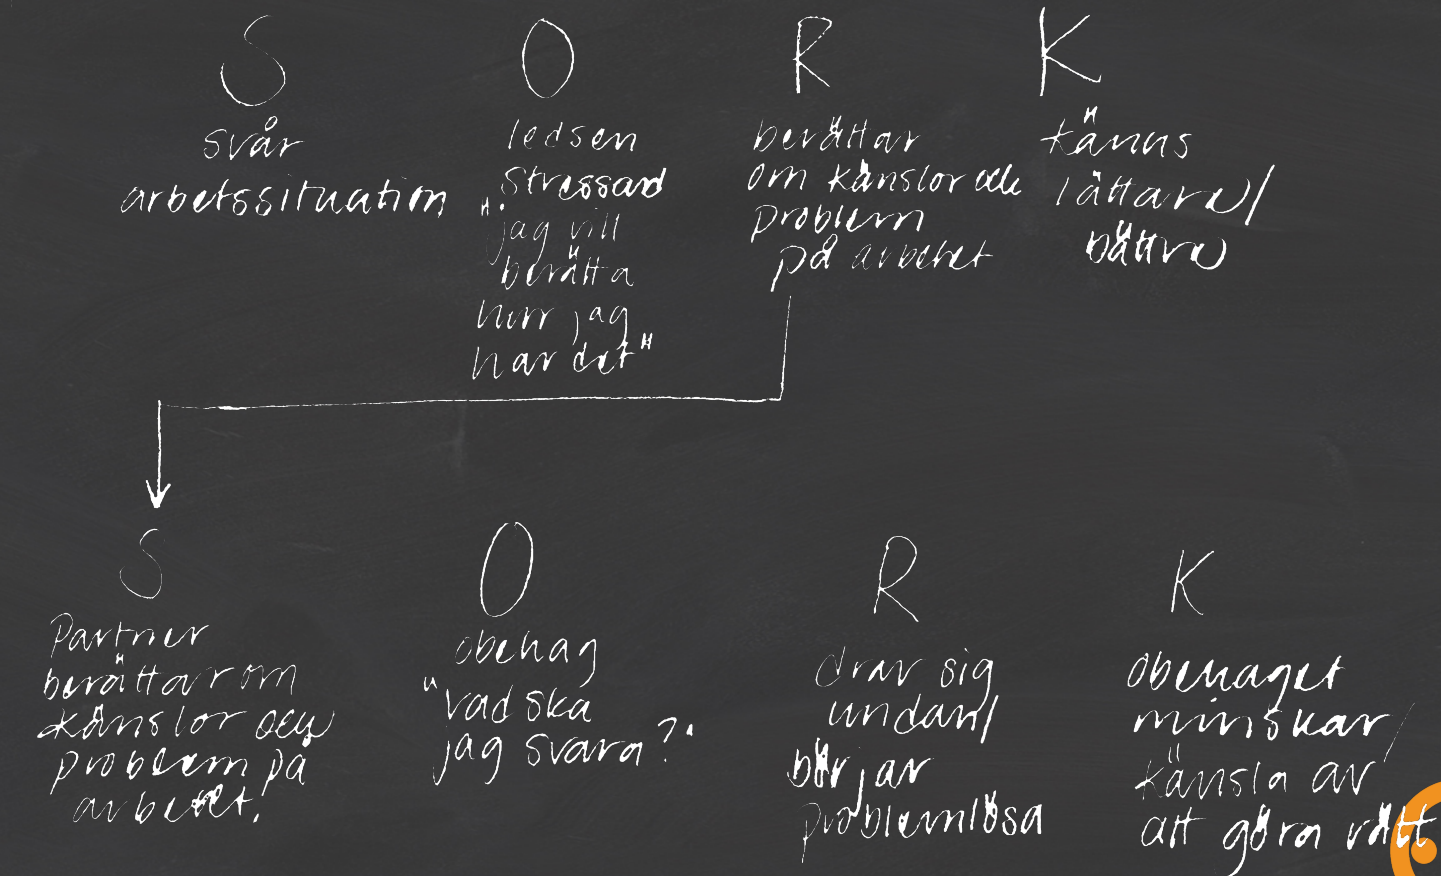 S O R K
svår
arbetssituation
ledsen
stressad
"jag vill
berätta
hurr jag
har det"
berättar
om känslor och
problem
på arbetet
känns
lättare/
bättre
S O R K
Partner
berättar om
känslor och
problem på
arbetet.
obehag
"vad ska
jag svara?"
drar sig
undan/
börjar
problemlösa
obehaget
minskar/
känsla av
att göra rätt